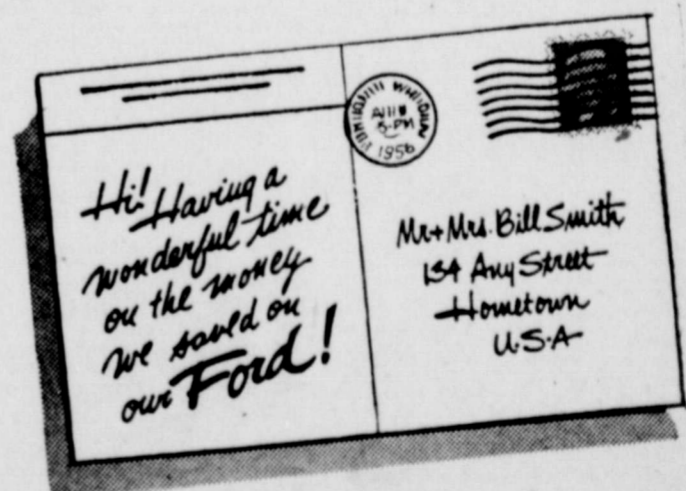 Hi!
Having a
wonderful time
on the money
we saved on
our Ford!
5-PM
1956
Mr + Mrs. Bill Smith
134 Any Street
Hometown
U.S.A